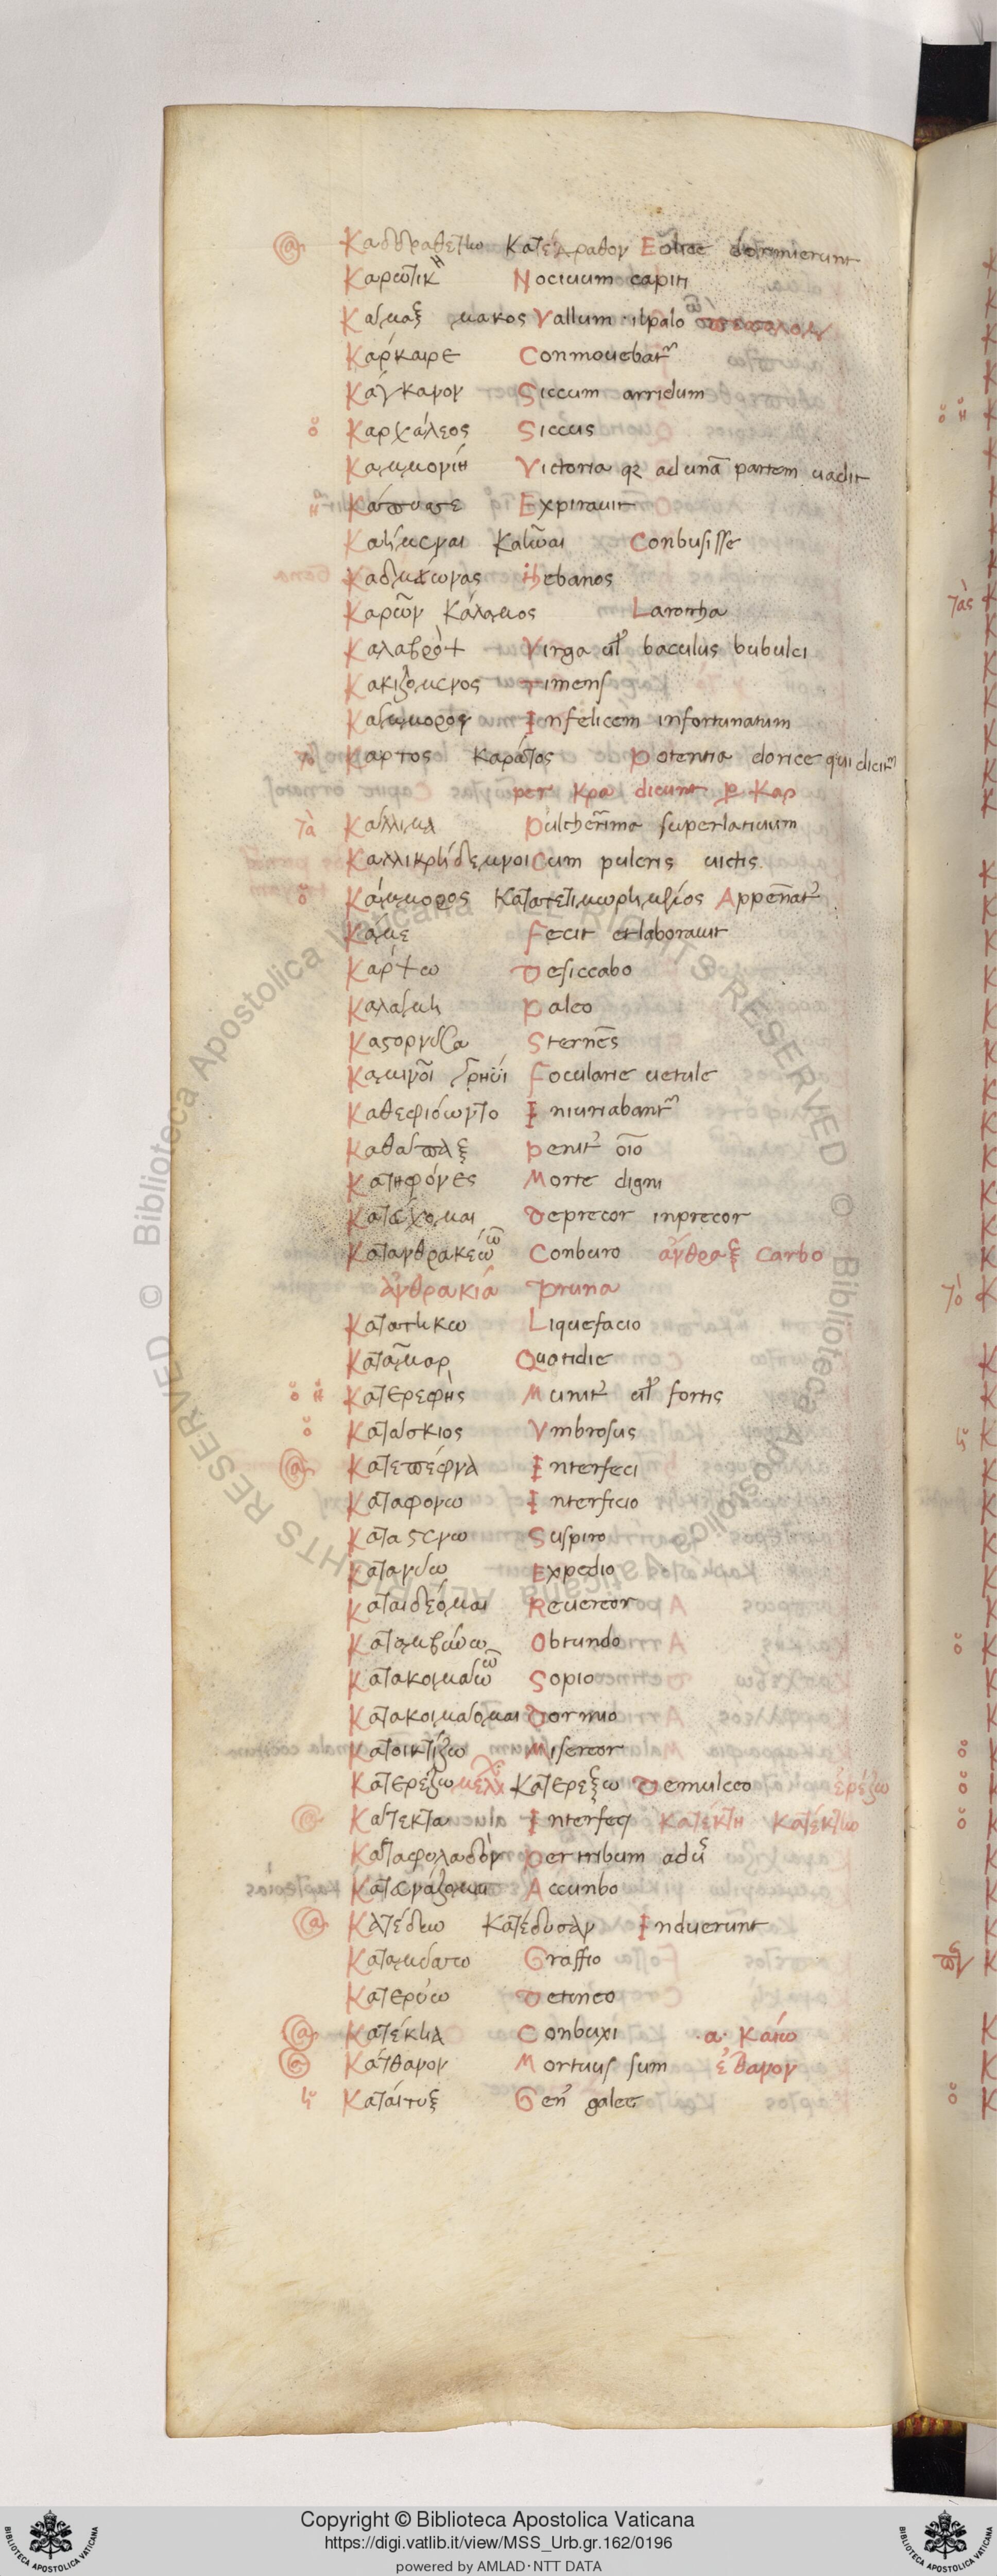 Καδδραθετω Κατέδραθον Eolice dormierunt
Καρωτικὴ Nociuum capiti
Κάμαξ μακος Vallum · il palo
Κάρκαιρε Conmouebatr
Κάγκανον Siccum arridum
ὁ Καρχάλεος Siccus
Καμμονίη Victoria qz ad unā partem uadit
Κάπυσε Expirauit
Καήμεναι Καῆναι Conbusisse
Καδμείωνας thebanos
Κάλαμος
Καλαβροψ Virga ul baculus bubulci
Κακιζόμενος Timens
Κάμμορον Infelicem infortunatum
τὸ Καρτος Κράτος Potentia dorice qui dicitr
per κρα dicunt ꝑ καρ
τὰ Κάλλιμα Pulcherrima superlatiuum
Καλλικρήδεμνοι Cum pulcris uictis
ὁ Κάμμορος
Κάμε Fecit et laborauit
Κάρψω Desiccabo
Καλάμη Paleo
Καστορνῦσα Sternēs
Καμινοῖ γρηῒ Focularie uetule
Καθεψιόωντο Iniuriabantr
Καθάπαξ Penit oīo
Κατηφόνες Morte digni
Κατεύχομαι Deprecor inprecor
Κατανθρακεύω Conburo ἄνθραξ carbo
ἀνθρακιά Pruna
Κατατήκω Liquefacio
Κατῆμαρ Quotidie
ὁ ἡ Κατερεφὴς Munit ul fortis
ὁ Κατάσκιος Vmbrosus
Κατέπεφνα Interfeci
Καταφονω Interficio
Καταστενω Suspiro
Κατανύω Expedio
Καταιδέομαι Reuereor
Καταμβλύνω Obtundo
Κατακοιμάω Sopio
Κατακοιμάομαι Dormio
Κατοικτίζω Misereor
Κατερέζω μελλ Κατερεξω Demulceo ἐρέζω
Κάτεκτα Interfeci Κατέκτη Κατέκτω
Καταφυλαδὸν Per tribum
Κατευνάζομαι Accunbo
Κατέδυω Κατέδυσαν Induerunt
Καταμύσσω Graffio
Κατερύω Detineo
Κατέκηα Conbuxi α. καίω
Κάτθανον Mortuus sum ἔθανον
ἡ Καταίτυξ Gen galee
Copyright © Biblioteca Apostolica Vaticana
https://digi.vatlib.it/view/MSS_Urb.gr.162/0196
powered by AMLAD·NTT DATA